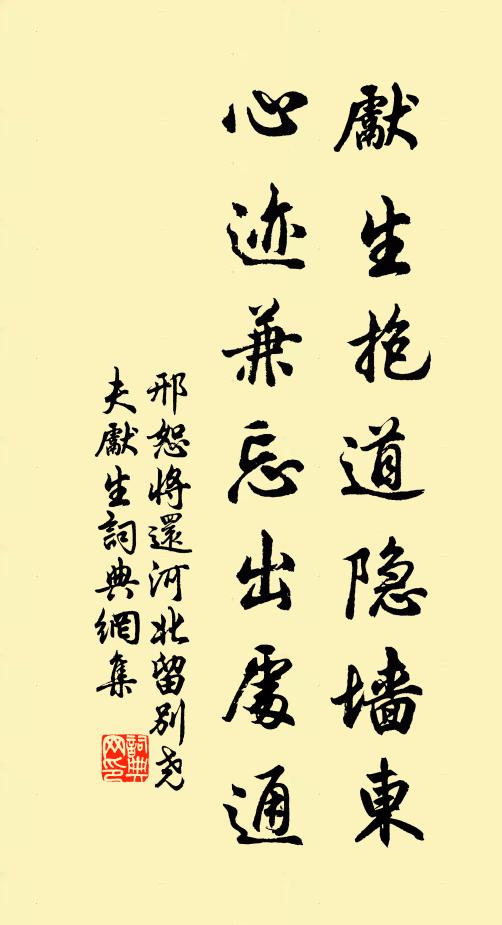 獻生抱道隐墙東
心迹兼忘出處通
邢恕將還河北留別堯
夫獻生詞典網集
詞典
网印